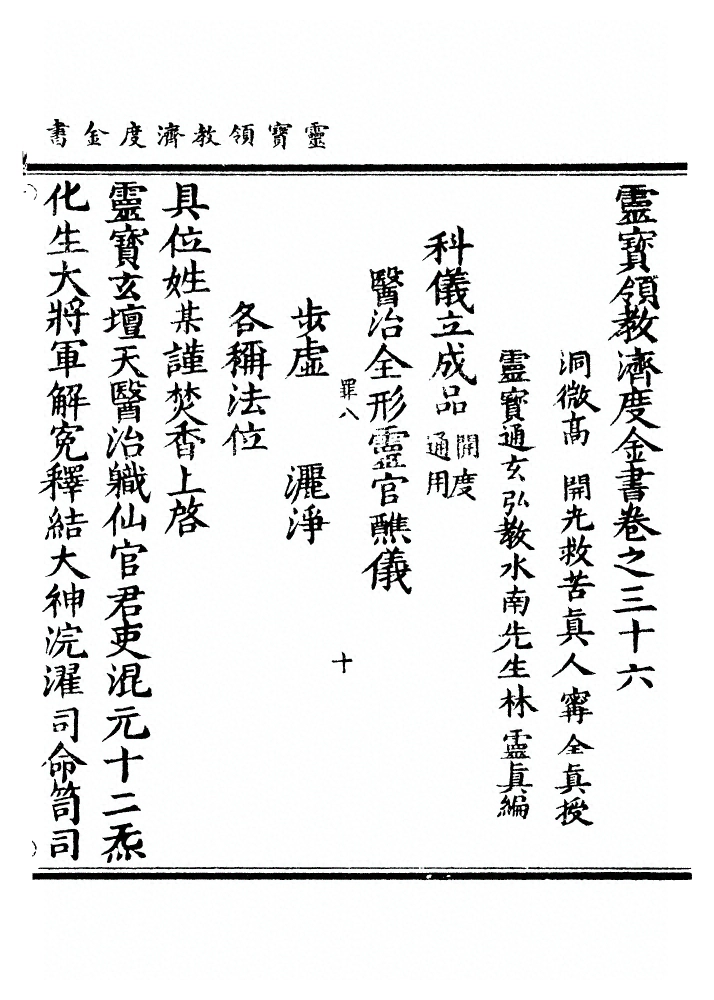 靈寶領教濟度金書
靈寶領教濟度金書卷之三十六
洞微高　開光救苦真人甯全真授
靈寶通玄弘教水南先生林靈真編
科儀立成品開度通用
醫治全形靈官醮儀
罪八　十
步虛　灑淨
各稱法位
具位姓某謹焚香上啓
靈寶玄壇天醫治軄仙官君吏混元十二炁
化生大將軍解冤釋結大神浣濯司命笥司